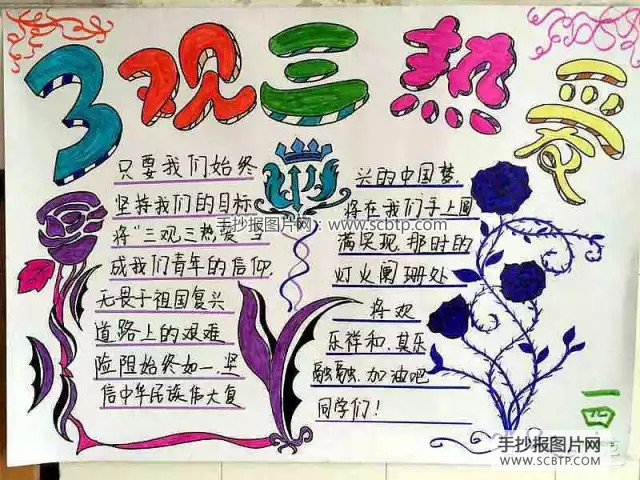 3观三热爱
只要我们始终
坚持我们的目标
将“三观三热爱”当
成我们青年的信仰,
无畏于祖国复兴
道路上的艰难
险阻始终如一.坚
信中华民族伟大复
兴的中国梦.
将在我们手上圆
满实现.那时的
灯火阑珊处
将欢
乐祥和.其乐
融融.加油吧
同学们!
一四
手抄报图片网:www.scbtp.com
手抄报图片网
WWW.SCBTP.COM